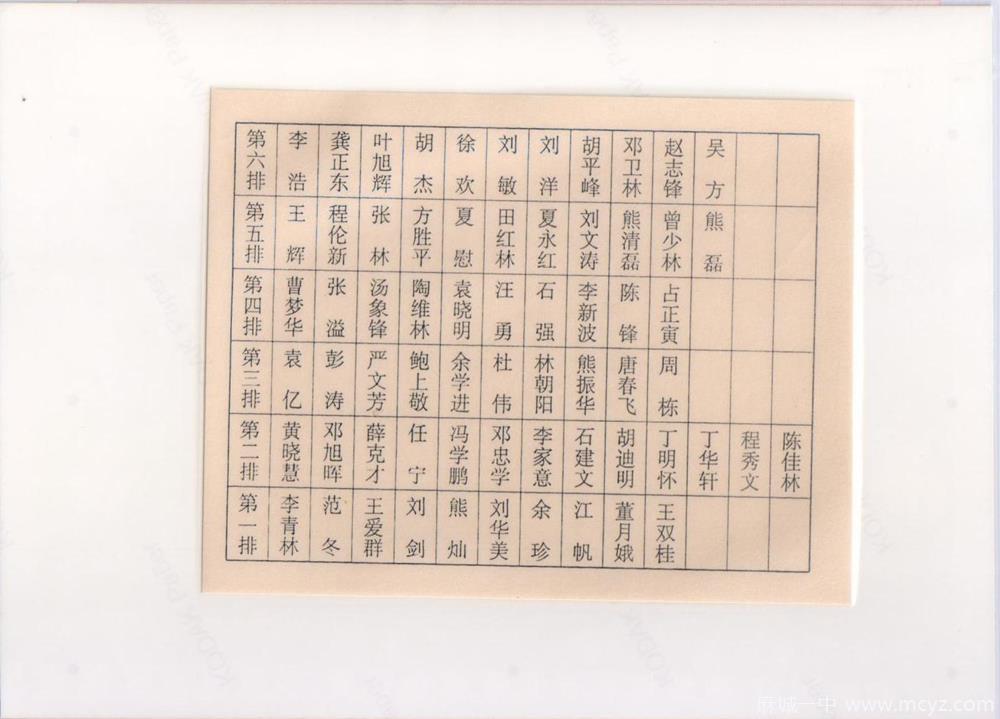 第六排 李浩 龚正东 叶旭辉 胡杰 徐欢 刘敏 刘洋 胡平峰 邓卫林 赵志锋 吴方
第五排 王辉 程伦新 张林 方胜平 夏慰 田红林 夏永红 刘文涛 熊清磊 曾少林 熊磊
第四排 曹梦华 张溢 汤象锋 陶维林 袁晓明 汪勇 石强 李新波 陈锋 占正寅
第三排 袁亿 彭涛 严文芳 鲍上敬 余学进 杜伟 林朝阳 熊振华 唐春飞 周栋
第二排 黄晓慧 邓旭晖 薛克才 任宁 冯学鹏 邓忠学 李家意 石建文 胡迪明 丁明怀 丁华轩 程秀文 陈佳林
第一排 李青林 范冬 王爱群 刘剑 熊灿 刘华美 余珍 江帆 董月娥 王双桂
麻城一中 www.mcyz.com